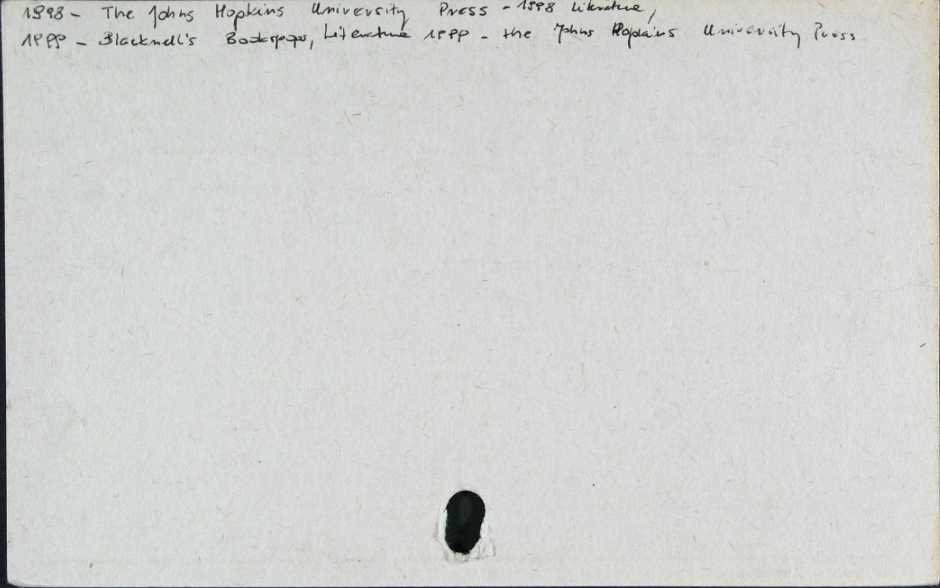 1998 - The Johns Hopkins University Press - 1998 Literature,
1999 - Blackwell's Bookpages, Literature 1999 - the Johns Hopkins University Press